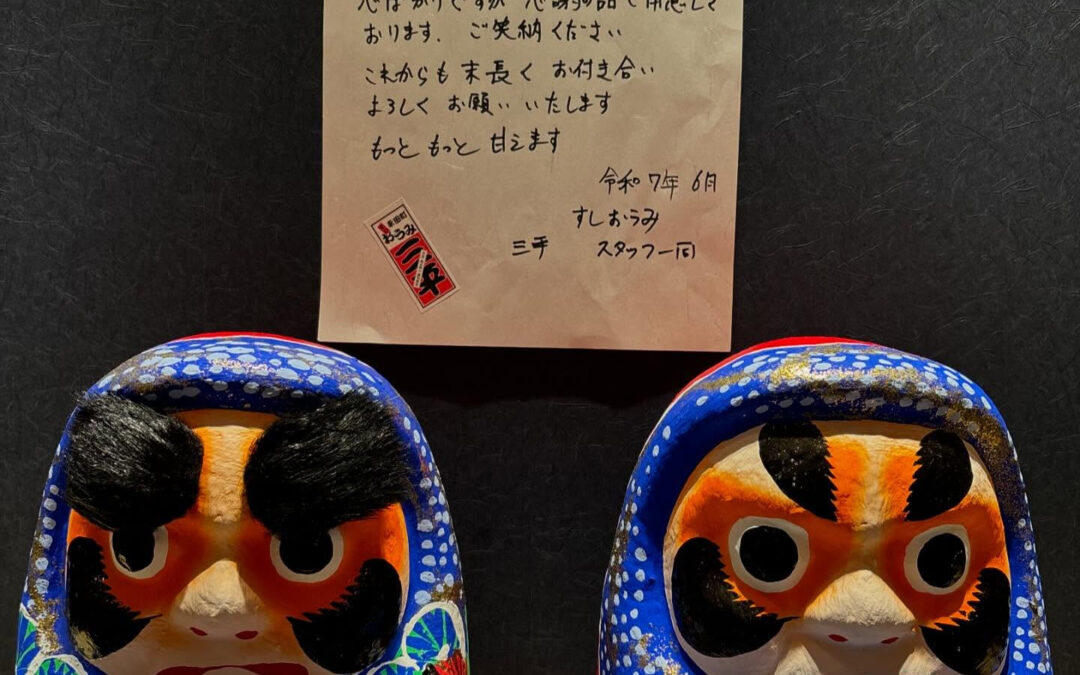 心ばかりですが 感謝の品ご用意して
おります、ご笑納ください
これからも 末長く お付き合い
よろしく お願い いたします
もっと もっと 甘えます
令和7年 6月
すしおうみ
三平 スタッフ一同
おうみ
三平